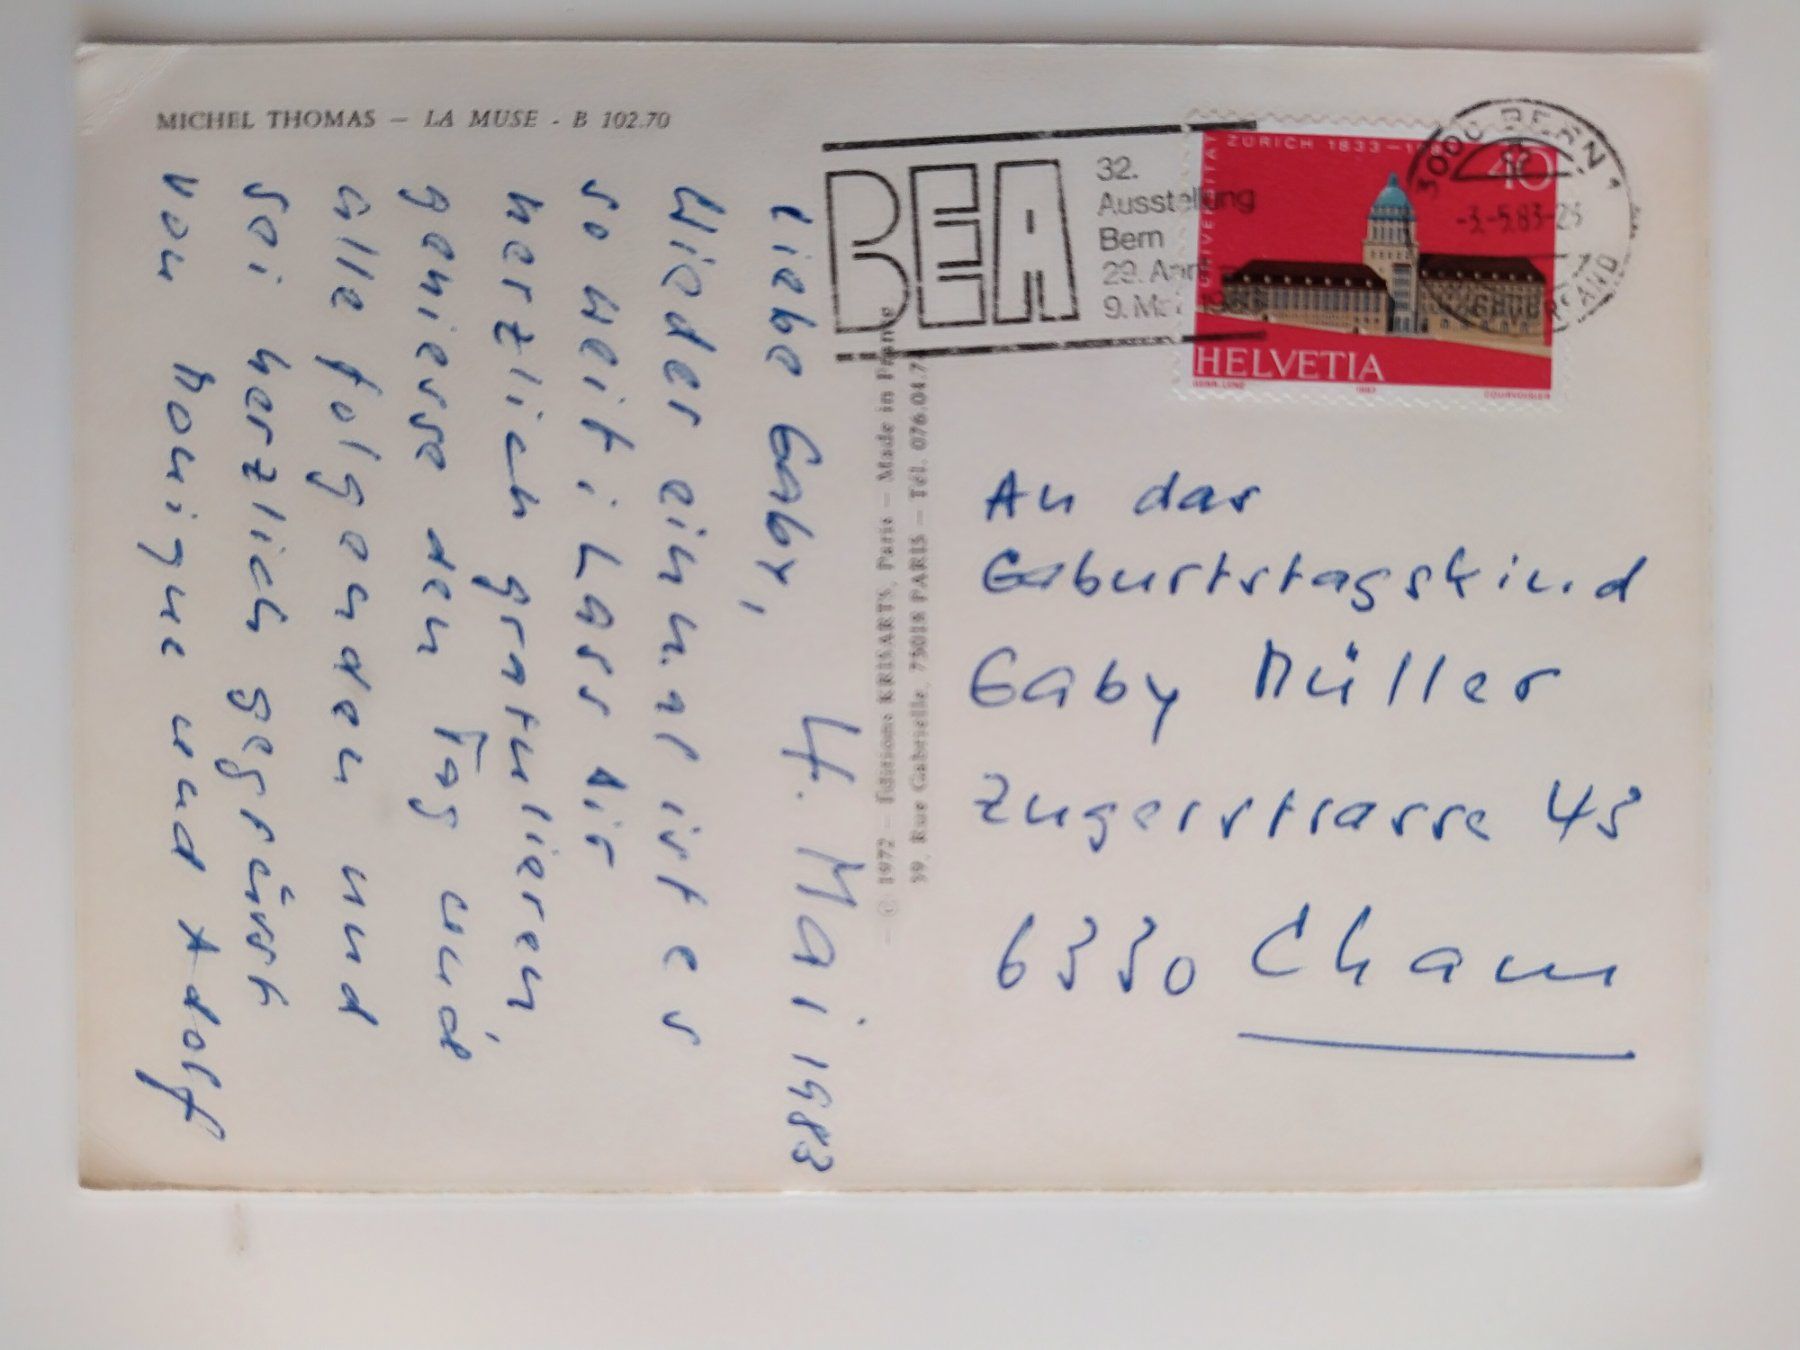 MICHEL THOMAS – LA MUSE - B 102.70
4. Mai 1983
Liebe Gaby,
Wieder einmal ist es
so weit: Lass Dir
herzlich gratulieren,
geniesse den Tag und
alle folgenden und
sei herzlich gegrüsst
von Monique und Adolf
© 1972 – Editions KRISARTS, Paris – Made in France
39, Rue Gabrielle, 75018 PARIS – Tél. 076.04.7
BEA
32.
Ausstellung
Bern
29. April
9. Mai 1983
UNIVERSITÄT
ZÜRICH 1833–198
40
HELVETIA
1983
COURVOISIER
3000 BERN 1
-3.-5.83-23
An das
Geburtstagskind
Gaby Müller
Zugerstrasse 43
6330 Cham